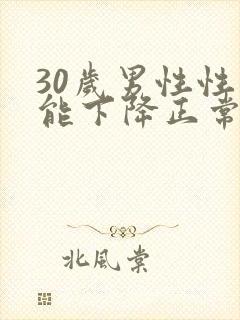 30歲男性性
能下降正常
北風棠